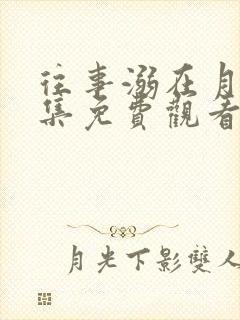 往事溺在月
集免費觀看
月光下影雙人